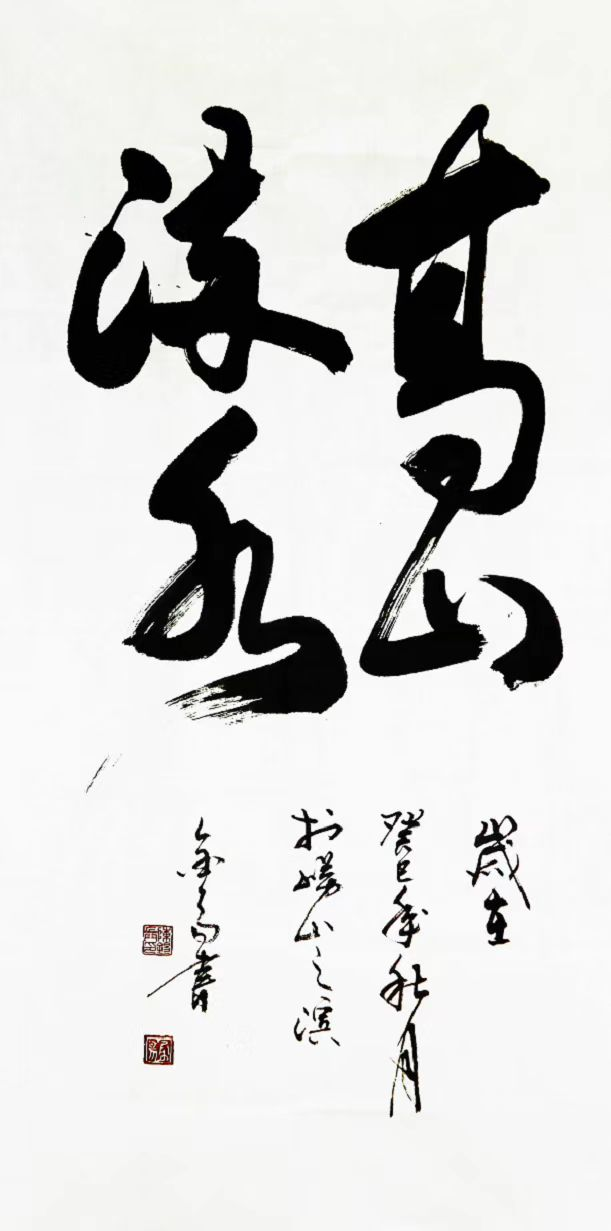 高山
流水
歲在
癸巳年秋月
於嶗山之濱
書